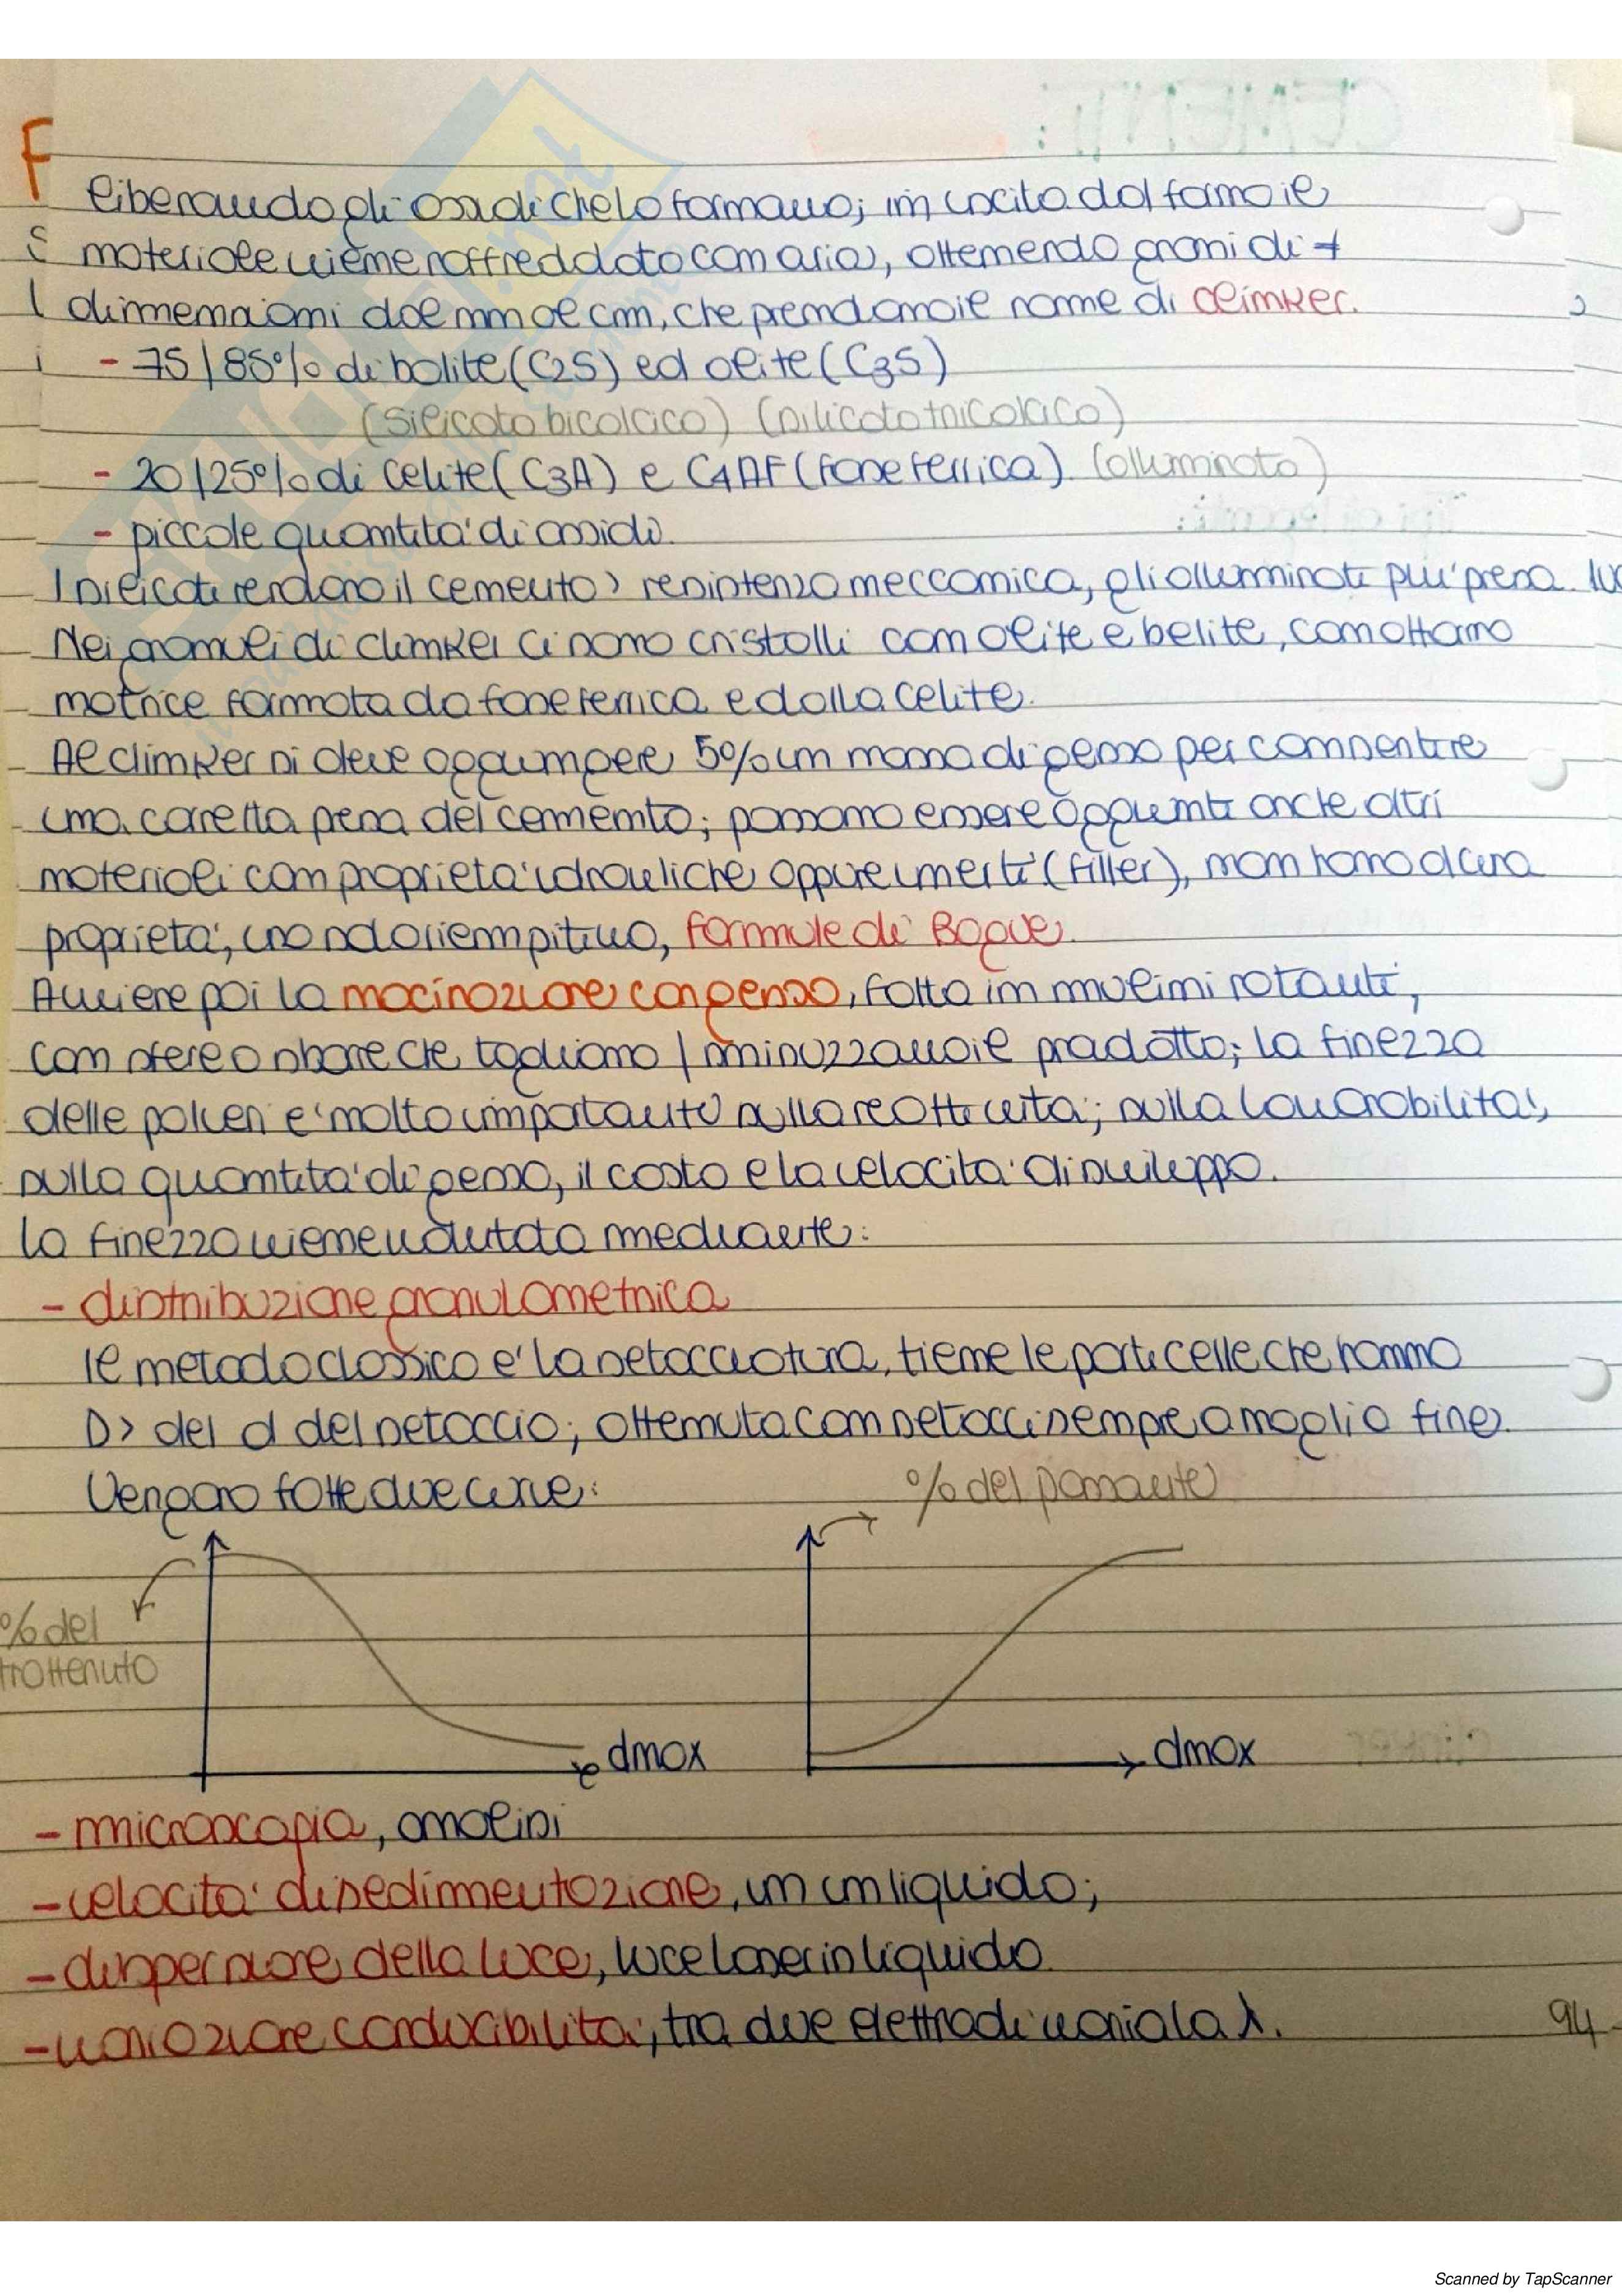 liberando gli ossidi che lo formano; in uscita dal forno il
materiale viene raffreddato con aria, ottenendo grani di ≠
dimensioni dal mm al cm, che prendono il nome di clinker.
- 75/85% di balite (C2S) ed alite (C3S)
(silicato bicalcico) (silicato tricalcico)
- 20/25% di celite (C3A) e C4AF (fase ferrica) (alluminato)
- piccole quantità di ossidi.
I silicati rendono il cemento > resistenza meccanica, gli alluminati più presa.
Nei granuli di clinker ci sono cristalli con alite e belite, con attorno
matrice formata da fase ferrica e dalla celite.
Al clinker si deve aggiungere 5% in massa di gesso per consentire
una corretta presa del cemento; possono essere aggiunti anche altri
materiali con proprietà idrauliche oppure inerti (filler), non hanno alcuna
proprietà, uno solo riempitivo, formule di Bogue.
Avviene poi la macinazione con gesso, fatta in mulini rotanti,
con sfere o sbarre che tagliano / sminuzzano il prodotto; la finezza
delle polveri è molto importante sulla reattività; sulla lavorabilità;
sulla quantità di gesso, il costo e la velocità di sviluppo.
La finezza viene valutata mediante:
- distribuzione granulometrica
Il metodo classico è la setacciatura, tiene le particelle che hanno
D> del d del setaccio; ottenuta con setacci sempre a maglia fine.
Vengono fatte due curve:
% del passante
% del
trattenuto
dmax
dmax
- microscopia, analisi
- velocità di sedimentazione, in un liquido;
- dispersione della luce, luce laser in liquido.
- variazione conducibilità, tra due elettrodi varia la λ.
94
Scanned by TapScanner